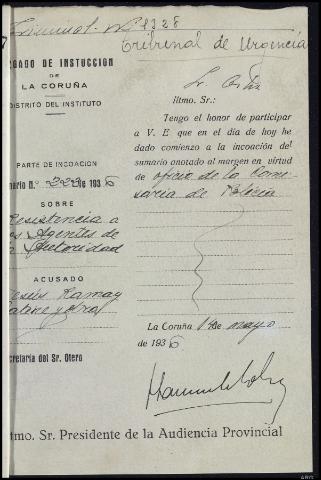 Criminal - Nº 1328
Tribunal de Urgencia
ZGADO DE INSTUCCION
DE
LA CORUÑA
DISTRITO DEL INSTITUTO
PARTE DE INCOACIÓN
mario N.º 222 de 1936
SOBRE
Resistencia a
os Agentes de
la Autoridad
ACUSADO
Jesús
y otro
ecretaría del Sr. Otero
Sr.
Iltmo. Sr.:
Tengo el honor de participar
a V. E que en el día de hoy he
dado comienzo a la incoación del
sumario anotado al margen en virtud
de oficio de la Comi
saria de Policia
La Coruña 14 de mayo
de 1936
tmo. Sr. Presidente de la Audiencia Provincial